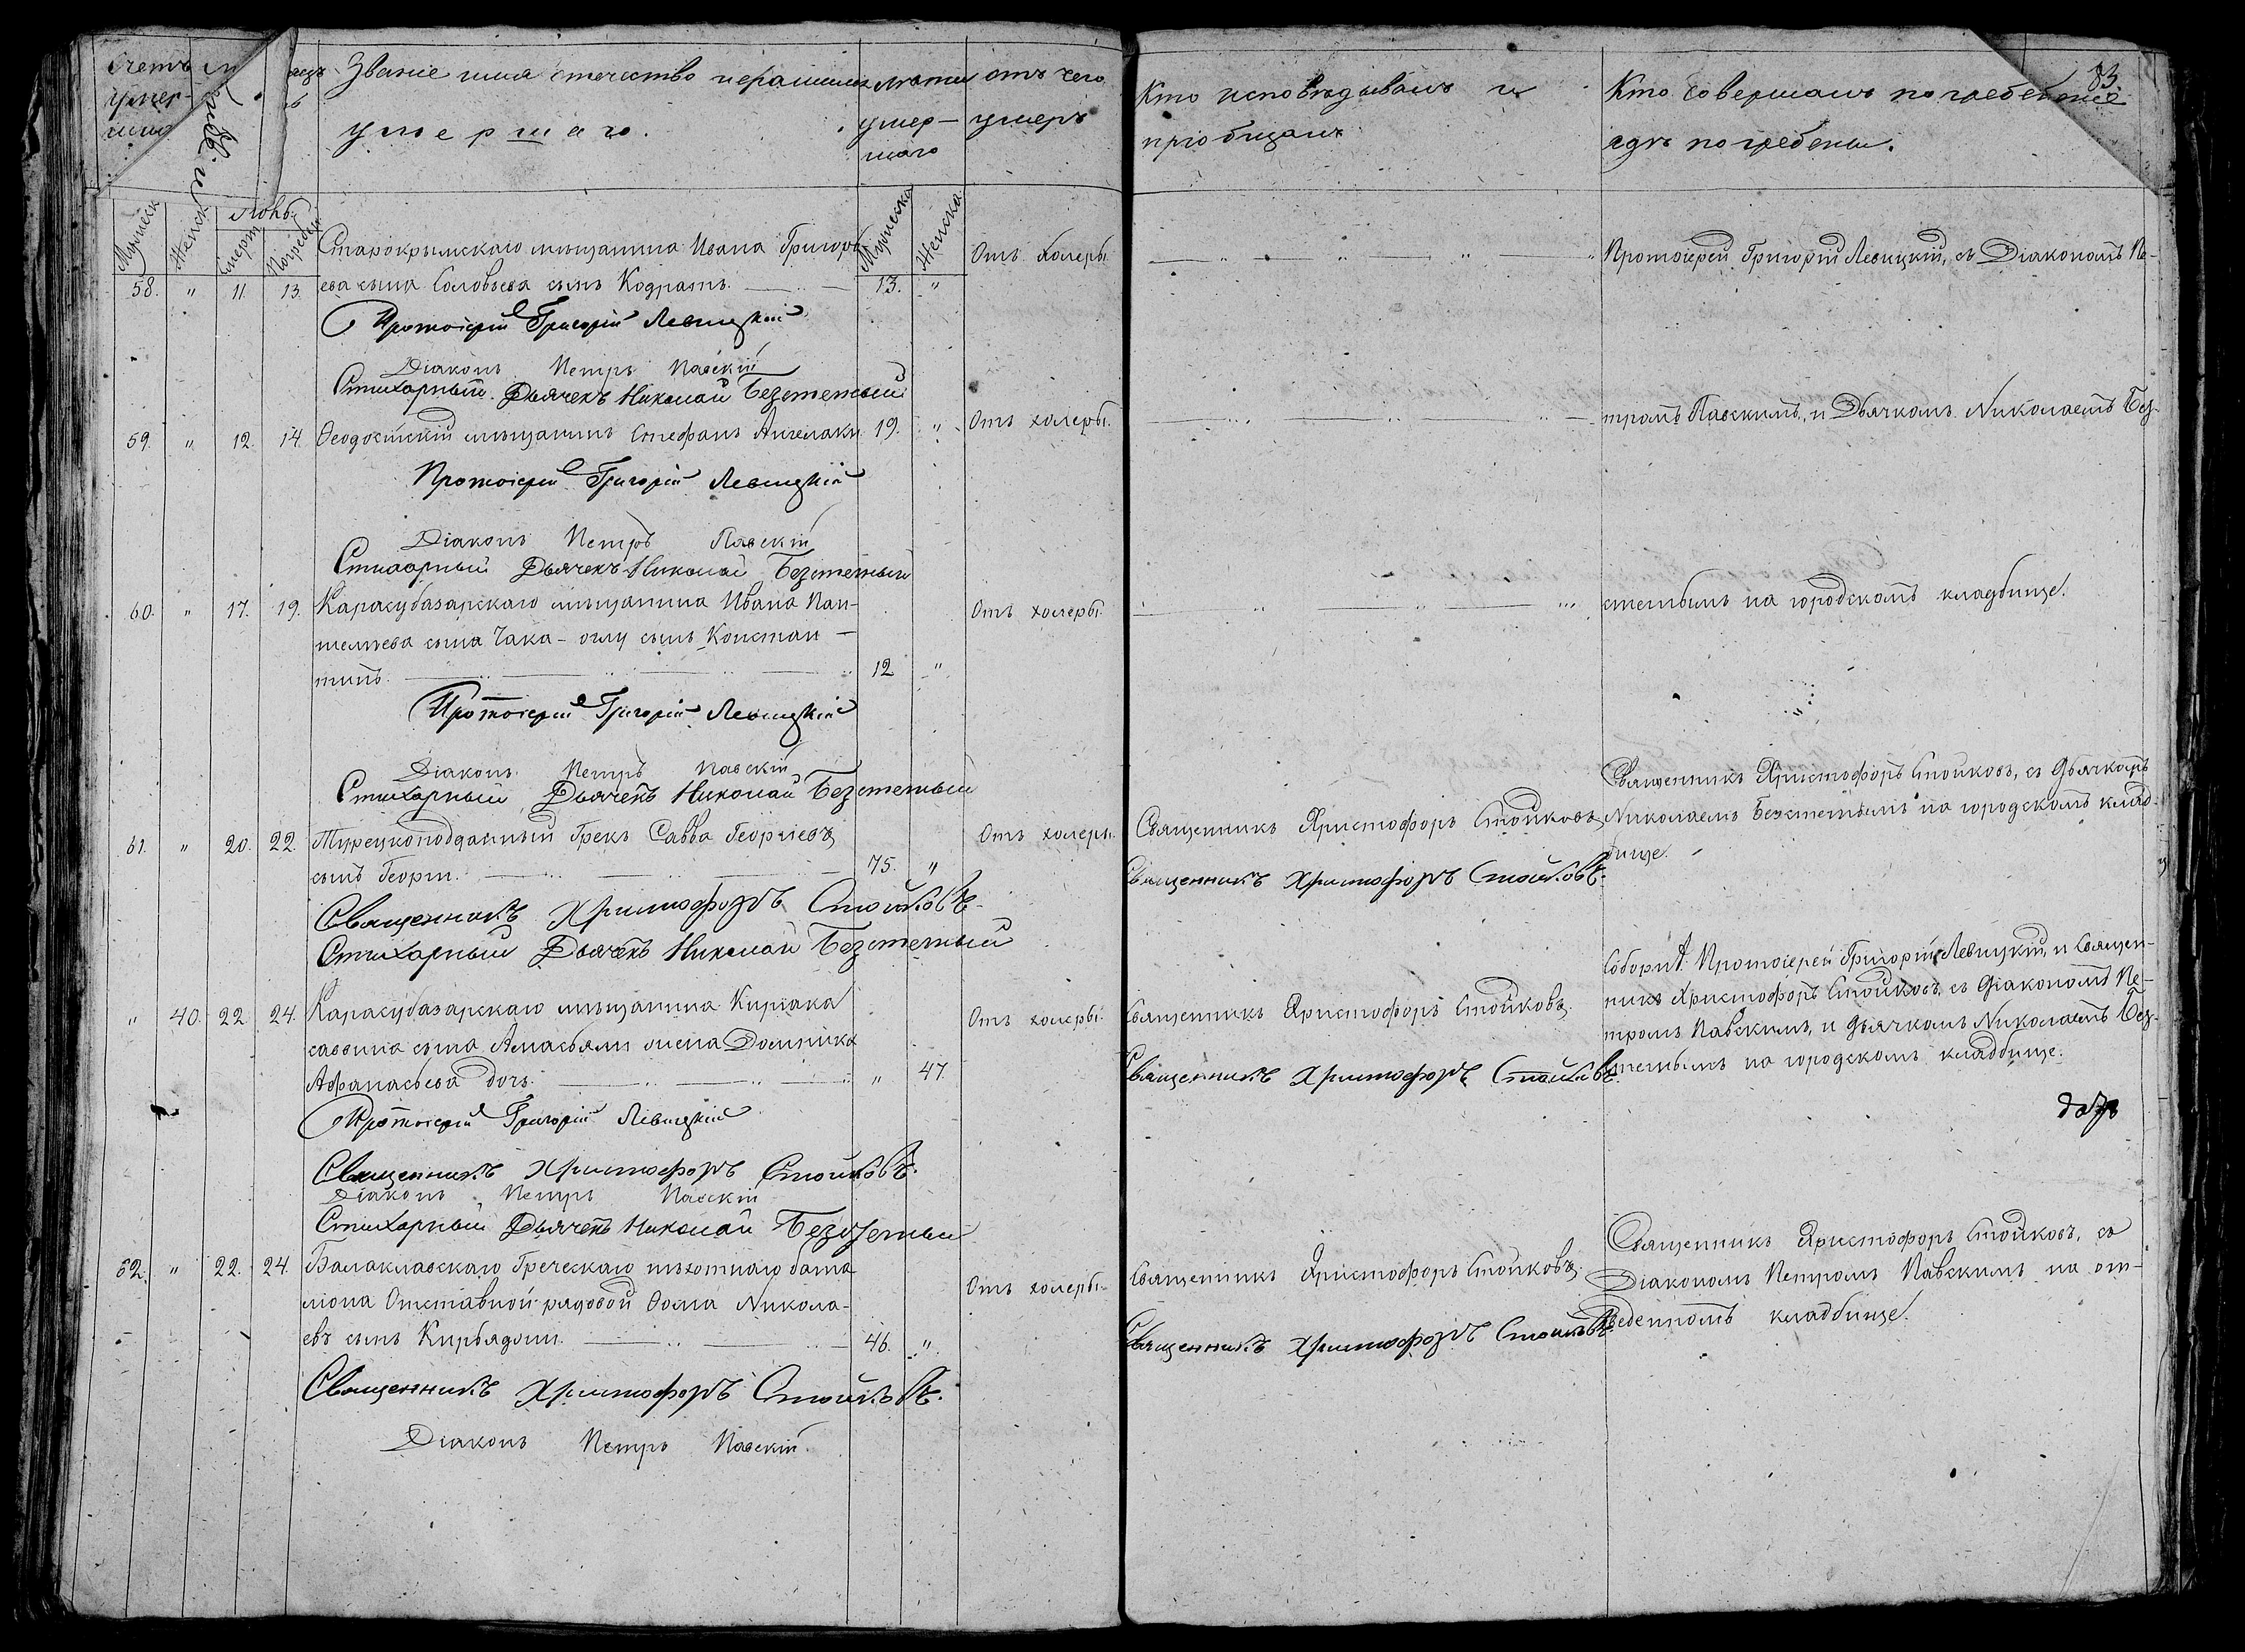 Счетъ
умер-
шихъ
Мѣсяцъ и
Звание имя отчество и фамилия
умершаго.
Лѣты
умер-
шаго
отъ чего
умеръ
Мужеск
Женск
Іюнь
Смерт
Погребен
Мужеска
Женска
58. " 11. 13. Старокрымскаго мѣщанина Ивана Григорь-
ева сына Соловьева сынъ Кодратъ. 13. " Отъ холеры
Протоіерей Григорій Левицкій
Діаконъ Петръ Павскій
Стихарный Дьячекъ Николай Безстетный
59. " 12. 14. Ѳеодосійскій мѣщанинъ Стефанъ Ангелаки 19. " Отъ холеры.
Протоіерей Григорій Левицкій
Діаконъ Петръ Павскій
Стихарный Дьячекъ Николай Безстетный
60. " 17. 19. Карасубазарскаго мѣщанина Ивана Пан- Отъ холеры.
телѣева сына Чака-оглу сынъ Констан-
тинъ. 12 "
Протоіерей Григорій Левицкій
Діаконъ Петръ Павскій
Стихарный Дьячекъ Николай Безстетный
61. " 20. 22. Турецкоподданный Грекъ Савва Георгіевъ Отъ холеры.
сынъ Георги. 75. "
Священникъ Христофоръ Стойковъ.
Стихарный Дьячекъ Николай Безстетный
" 40. 22. 24. Карасубазарскаго мѣщанина Киріака Отъ холеры.
саввина сына жена Домникія
Афанасьева дочь. " 47.
Протоіерей Григорій Левицкій
Священникъ Христофоръ Стойковъ.
Діаконъ Петръ Павскій
Стихарный Дьячекъ Николай Безстетный
62. " 22. 24. Балаклавскаго Греческаго пѣхотнаго бата-
ліона Отставной рядовой Ѳома Никола- Отъ холеры.
евъ сынъ 46. "
Священникъ Христофоръ Стойковъ.
Діаконъ Петръ Павскій.
Кто исповѣдывалъ и
пріобщалъ
Кто совершалъ погребеніе
гдѣ погребены.
83.
Протоіерей Григорій Левицкій, съ Діакономъ Пе-
тромъ Павскимъ, и Дьячкомъ Николаемъ Без-
стетнымъ на городскомъ кладбище.
Священникъ Христофоръ Стойковъ, съ дьячкомъ
Священникъ Христофоръ Стойковъ Николаемъ Безстетнымъ на городскомъ клад-
бище.
Священникъ Христофоръ Стойковъ.
Протоіерей Григорій Левицкій, и Священ-
Священникъ Христофоръ Стойковъ. никъ Христофоръ Стойковъ, съ діакономъ Пе-
тромъ Павскимъ, и дьячкомъ Николаемъ Без-
Священникъ Христофоръ Стойковъ. стетнымъ на городскомъ кладбище.
Священникъ Христофоръ Стойковъ, съ
Священникъ Христофоръ Стойковъ. Діакономъ Петромъ Павскимъ на от-
веденномъ кладбище.
Священникъ Христофоръ Стойковъ.